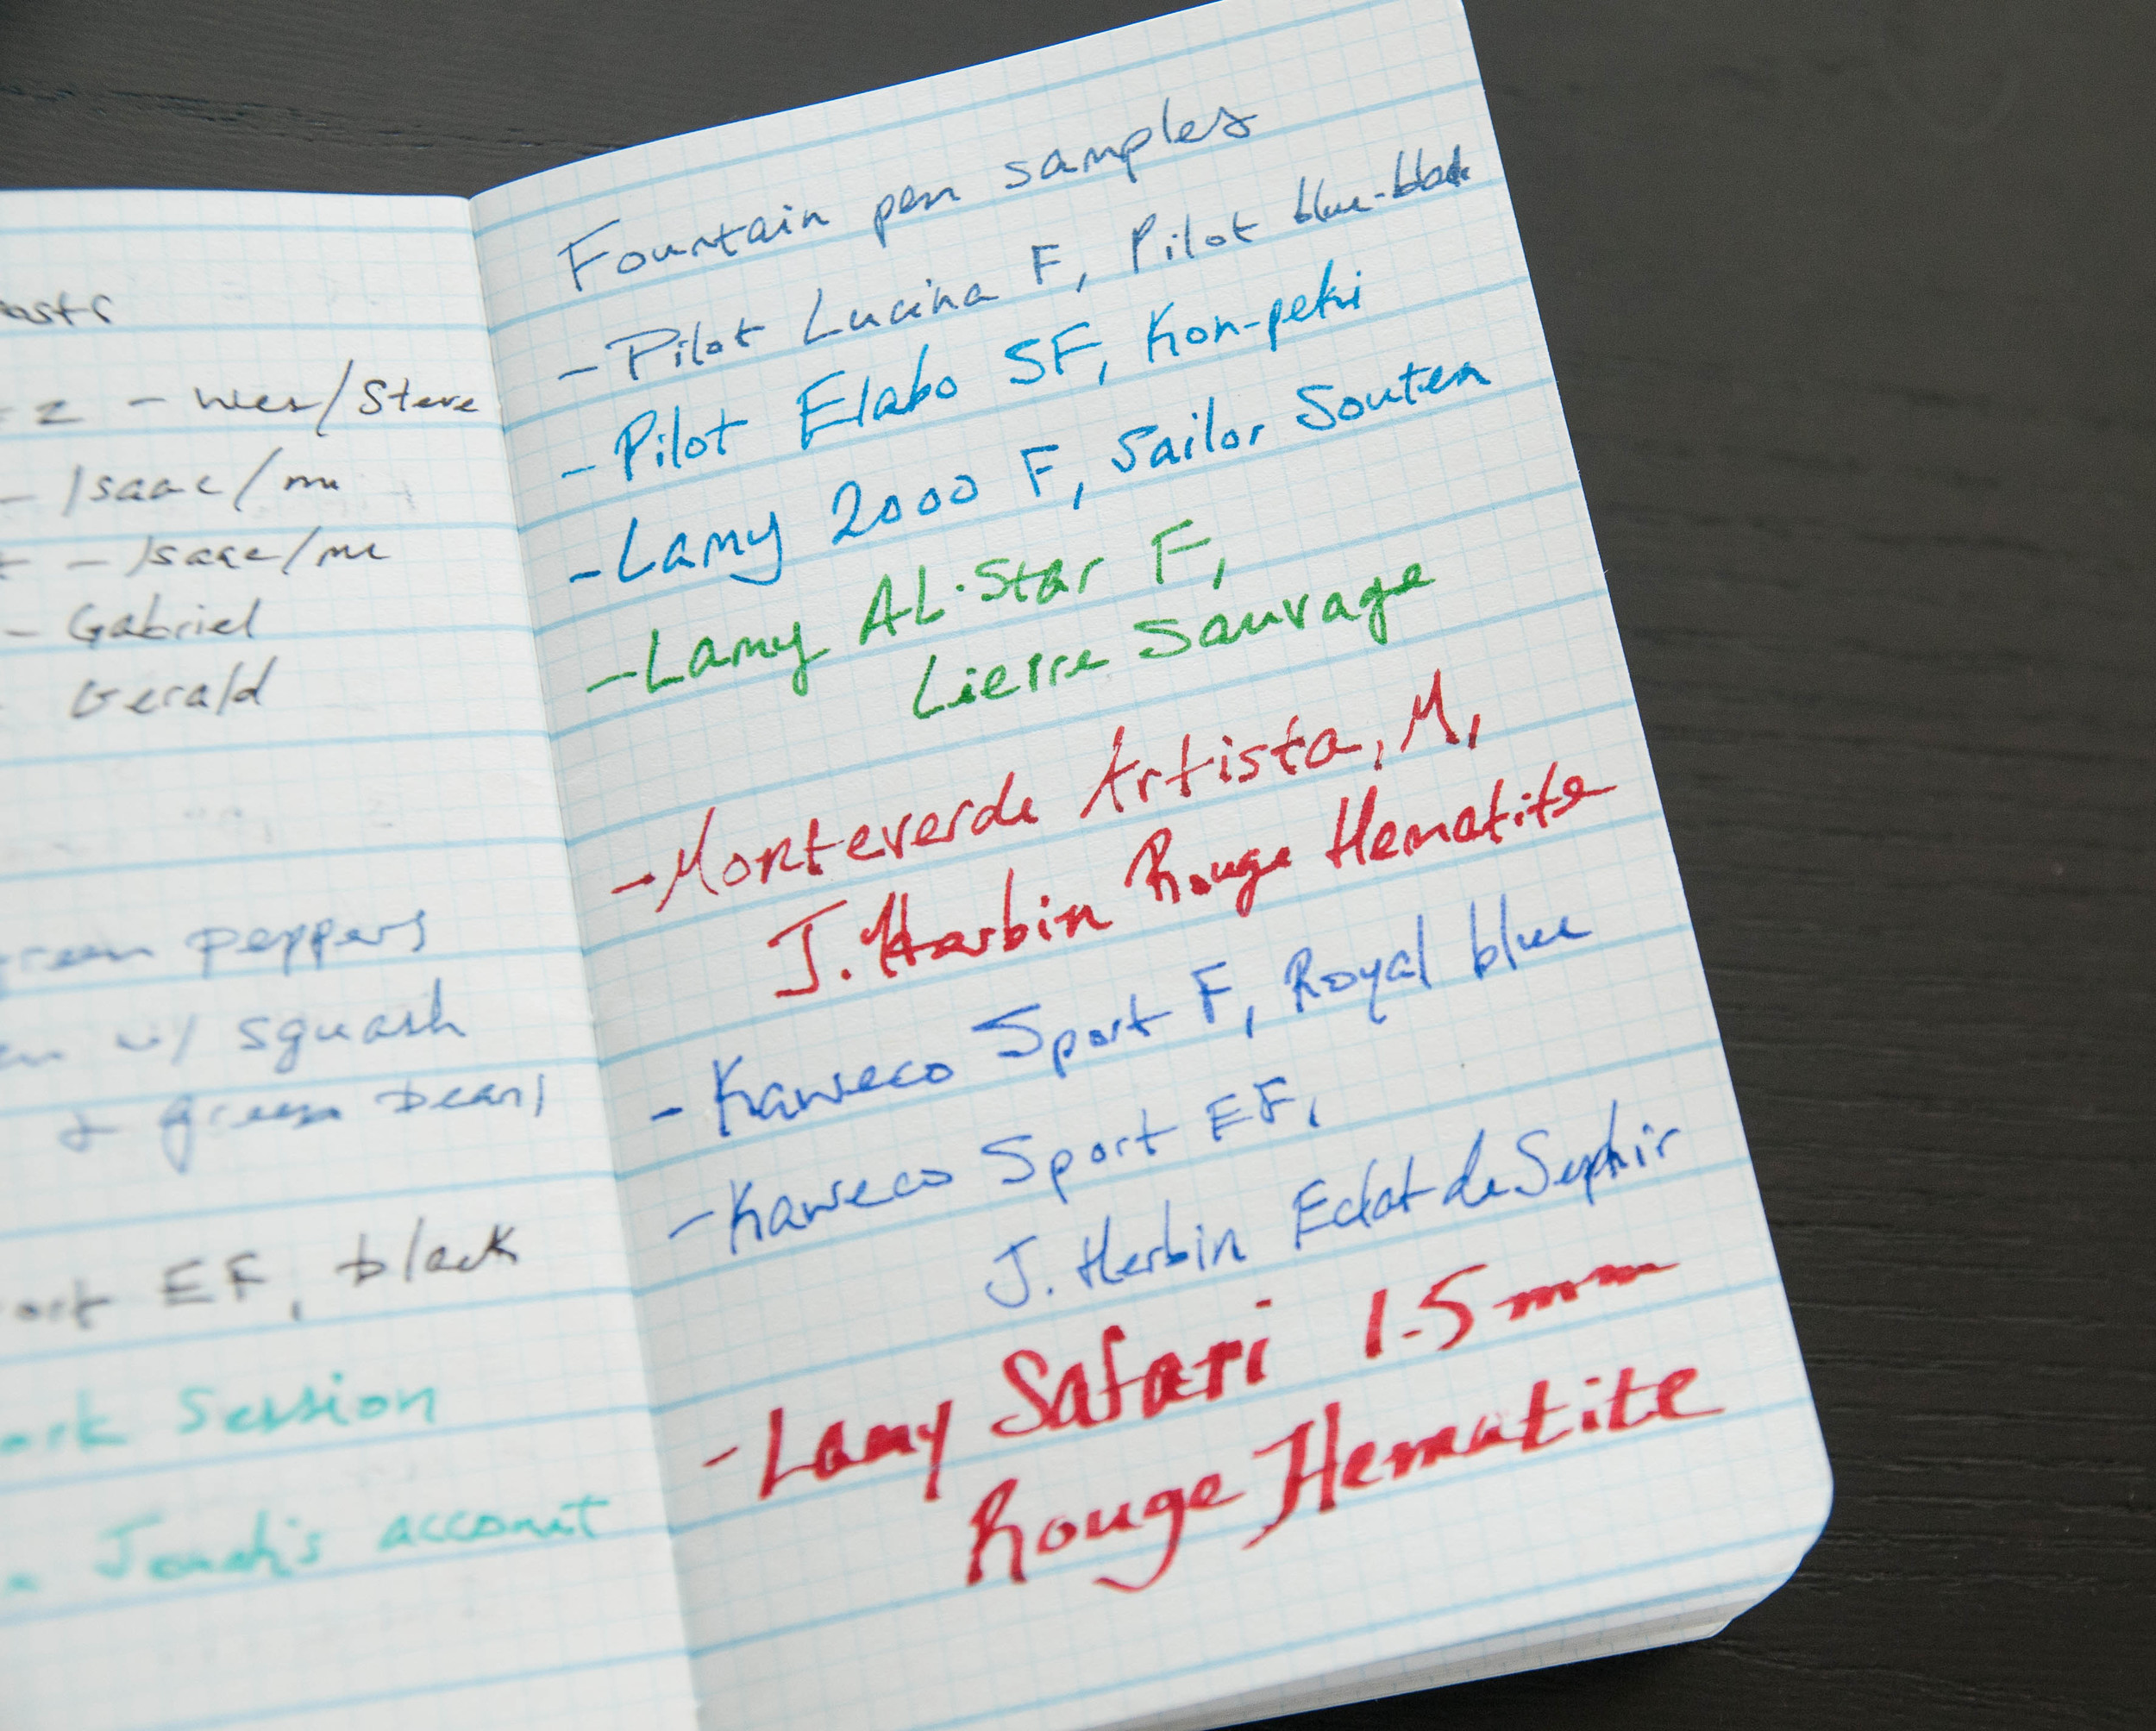 - wes/Steve
- Isaac/me
- Isaac/me
- Gabriel
Gerald
peppers
w/ squash
& green beans
EF, black
Session
account
Fountain pen samples
- Pilot Lucina F, Pilot blue-black
- Pilot Elabo SF, Kon-peki
- Lamy 2000 F, Sailor Souten
- Lamy AL-Star F,
Lierre Sauvage
- Monteverde Artista, M,
J. Herbin Rouge Hematite
- Kaweco Sport F, Royal blue
- Kaweco Sport EF,
J. Herbin Eclat de Saphir
- Lamy Safari 1.5mm
Rouge Hematite